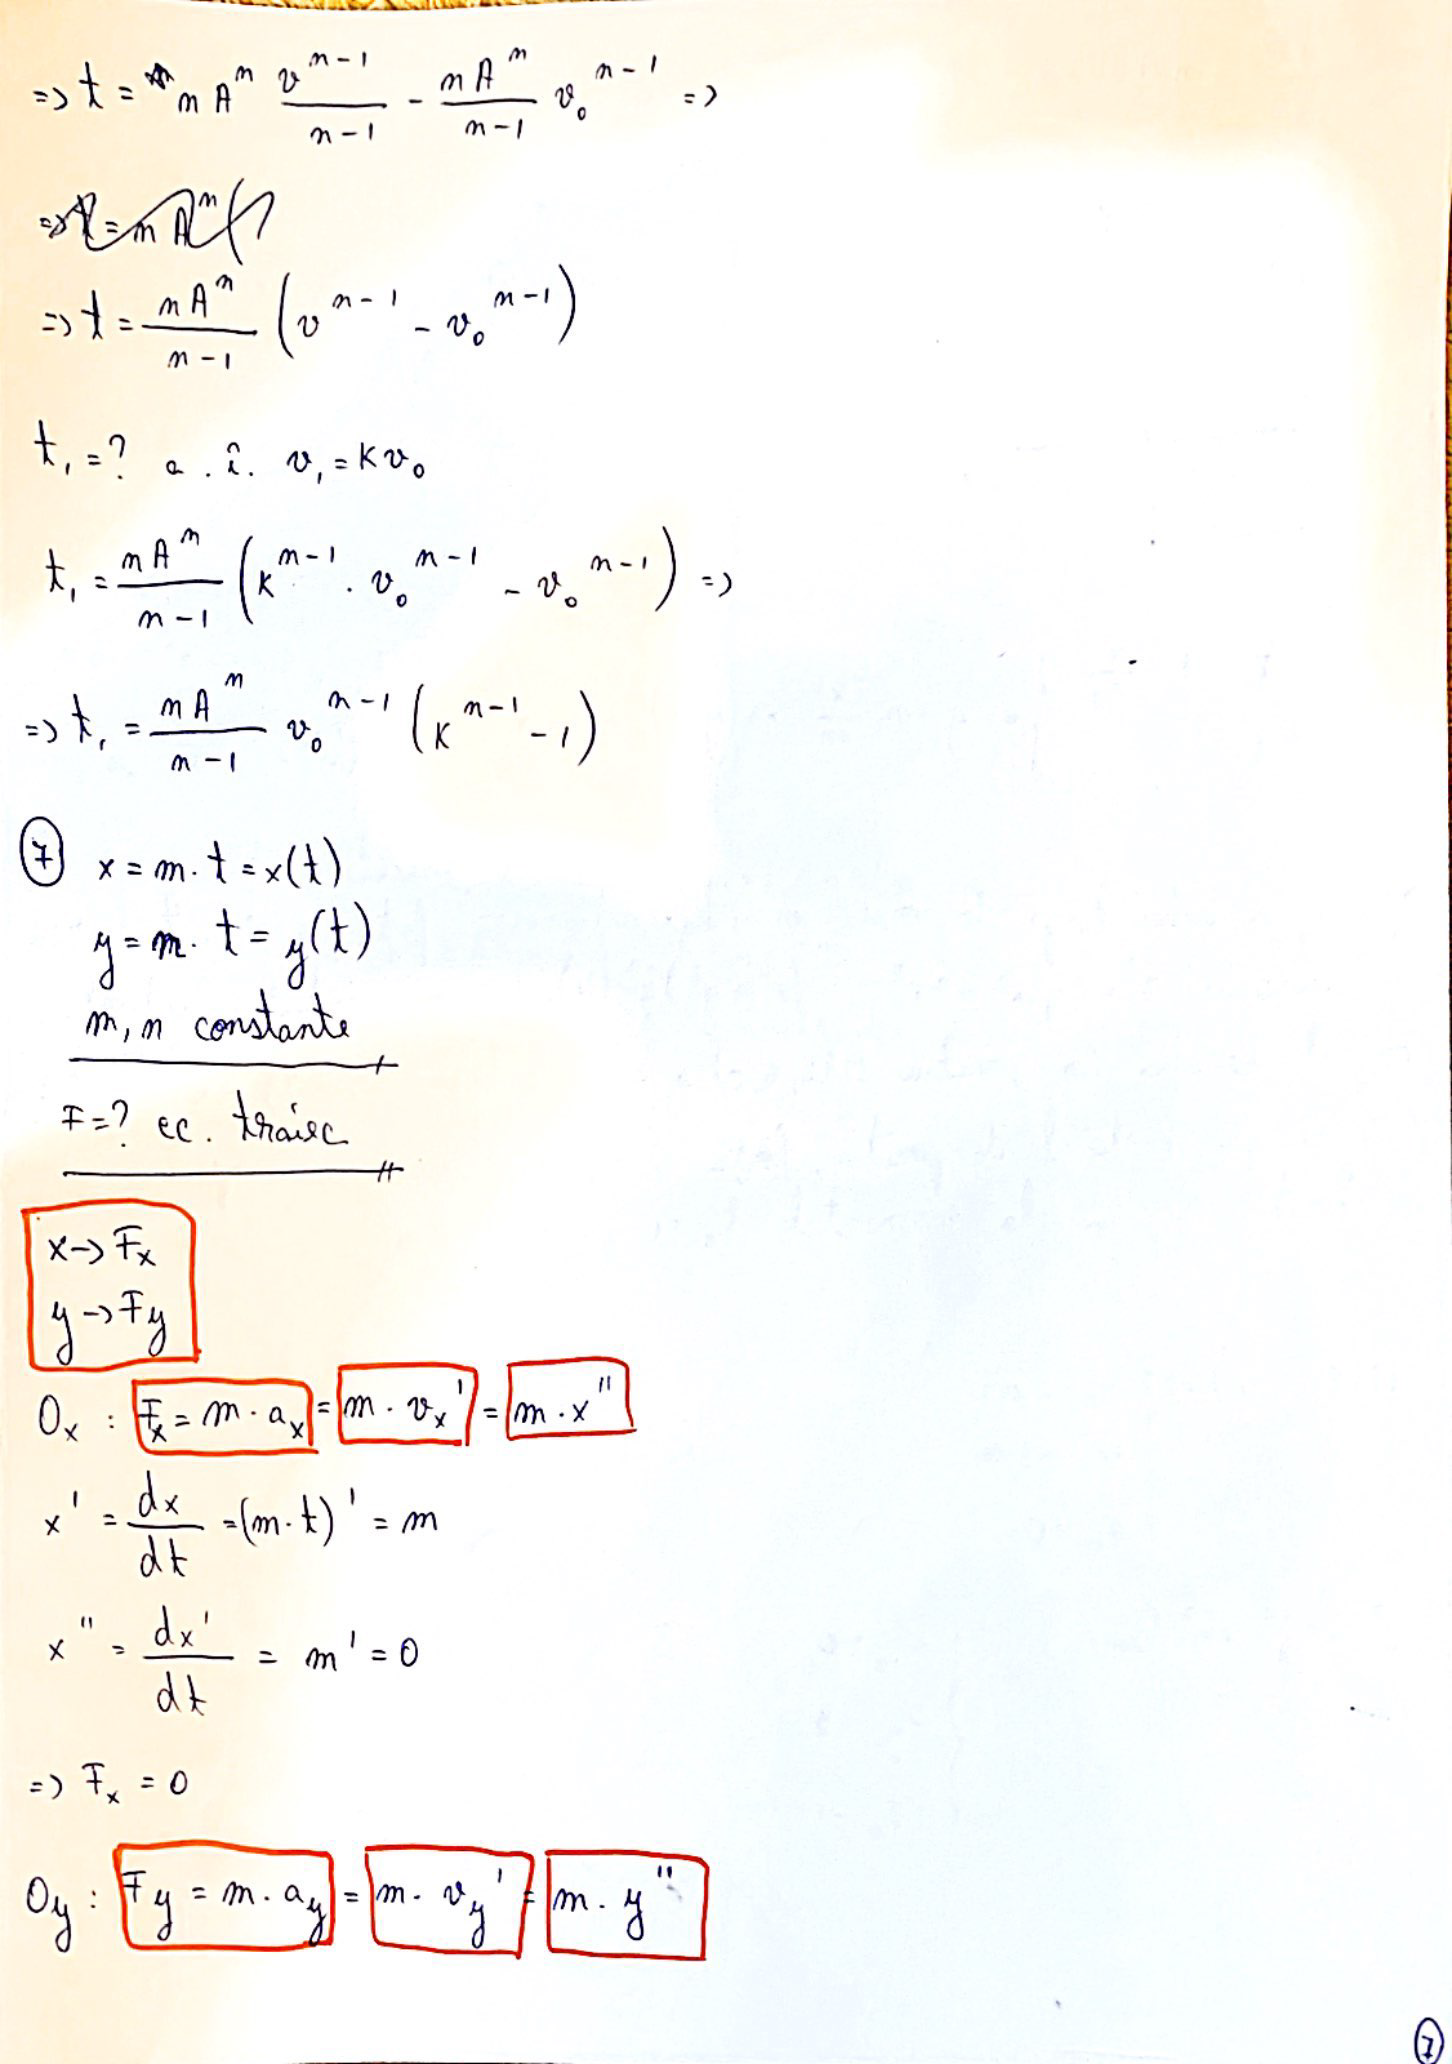 => t = m Aⁿ vⁿ⁻¹/(n-1) - m Aⁿ/(n-1) v₀ⁿ⁻¹ =>
=> t = m Aⁿ (
=> t = m Aⁿ/(n-1) (vⁿ⁻¹ - v₀ⁿ⁻¹)
t₁ = ? a. î. v₁ = k v₀
t₁ = m Aⁿ/(n-1) (kⁿ⁻¹ · v₀ⁿ⁻¹ - v₀ⁿ⁻¹) =>
=> t₁ = m Aⁿ/(n-1) v₀ⁿ⁻¹ (kⁿ⁻¹ - 1)
⑦ x = m · t = x(t)
y = m · t = y(t)
m, n constante
F = ? ec. traiec
x -> Fx
y -> Fy
Ox : Fx = m · ax = m · vx' = m · x''
x' = dx/dt = (m · t)' = m
x'' = dx'/dt = m' = 0
=> Fx = 0
Oy : Fy = m · ay = m · vy' = m · y''
⑦